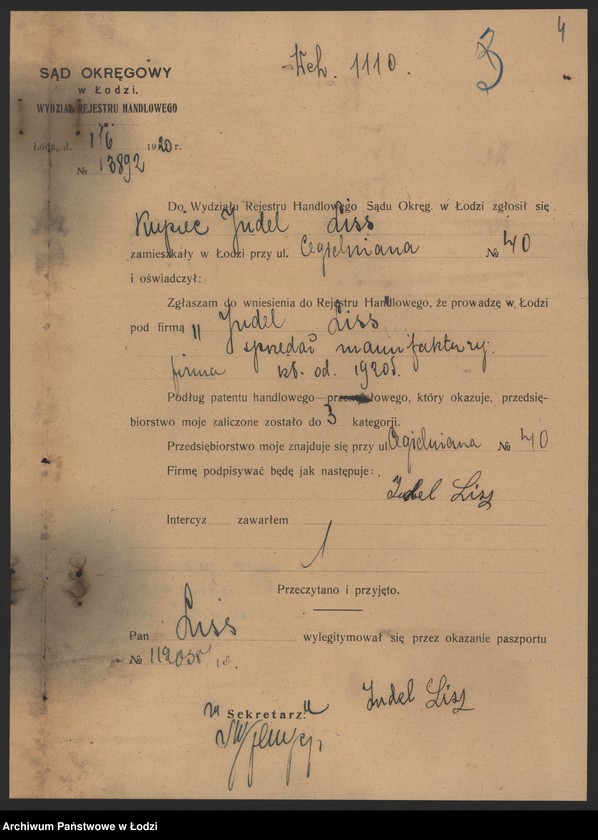 4
Rch. 1110.
3
SĄD OKRĘGOWY
w Łodzi.
WYDZIAŁ REJESTRU HANDLOWEGO
Łódź, d. 1/6 1920 r.
№ 13892
Do Wydziału Rejestru Handlowego Sądu Okręg. w Łodzi zgłosił się
Kupiec Judel Liss
zamieszkały w Łodzi przy ul. Cegielniana № 40
i oświadczył:
Zgłaszam do wniesienia do Rejestru Handlowego, że prowadzę w Łodzi
pod firmą "Judel Liss"
sprzedaż manufaktury.
firma od 1920
Podług patentu handlowego przemysłowego, który okazuje, przedsię-
biorstwo moje zaliczone zostało do 3 kategorji.
Przedsiębiorstwo moje znajduje się przy ul. Cegielniana № 40
Firmę podpisywać będę jak następuje:
Judel Lisz
Intercyz zawarłem
Przeczytano i przyjęto.
Pan Liss wylegitymował się przez okazanie paszportu
№ 112038
Judel Lisz
Sekretarz:
Archiwum Państwowe w Łodzi